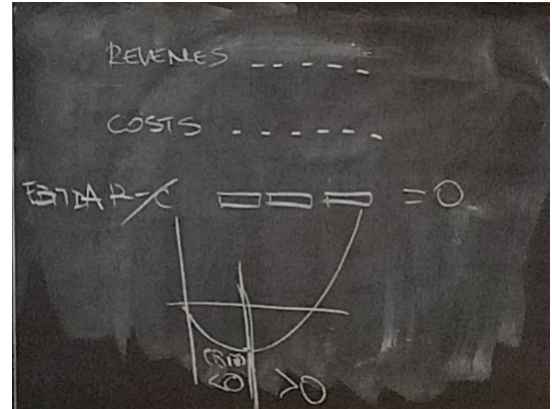 REVENUES
COSTS
EBITDA R-C = 0
<0 >0